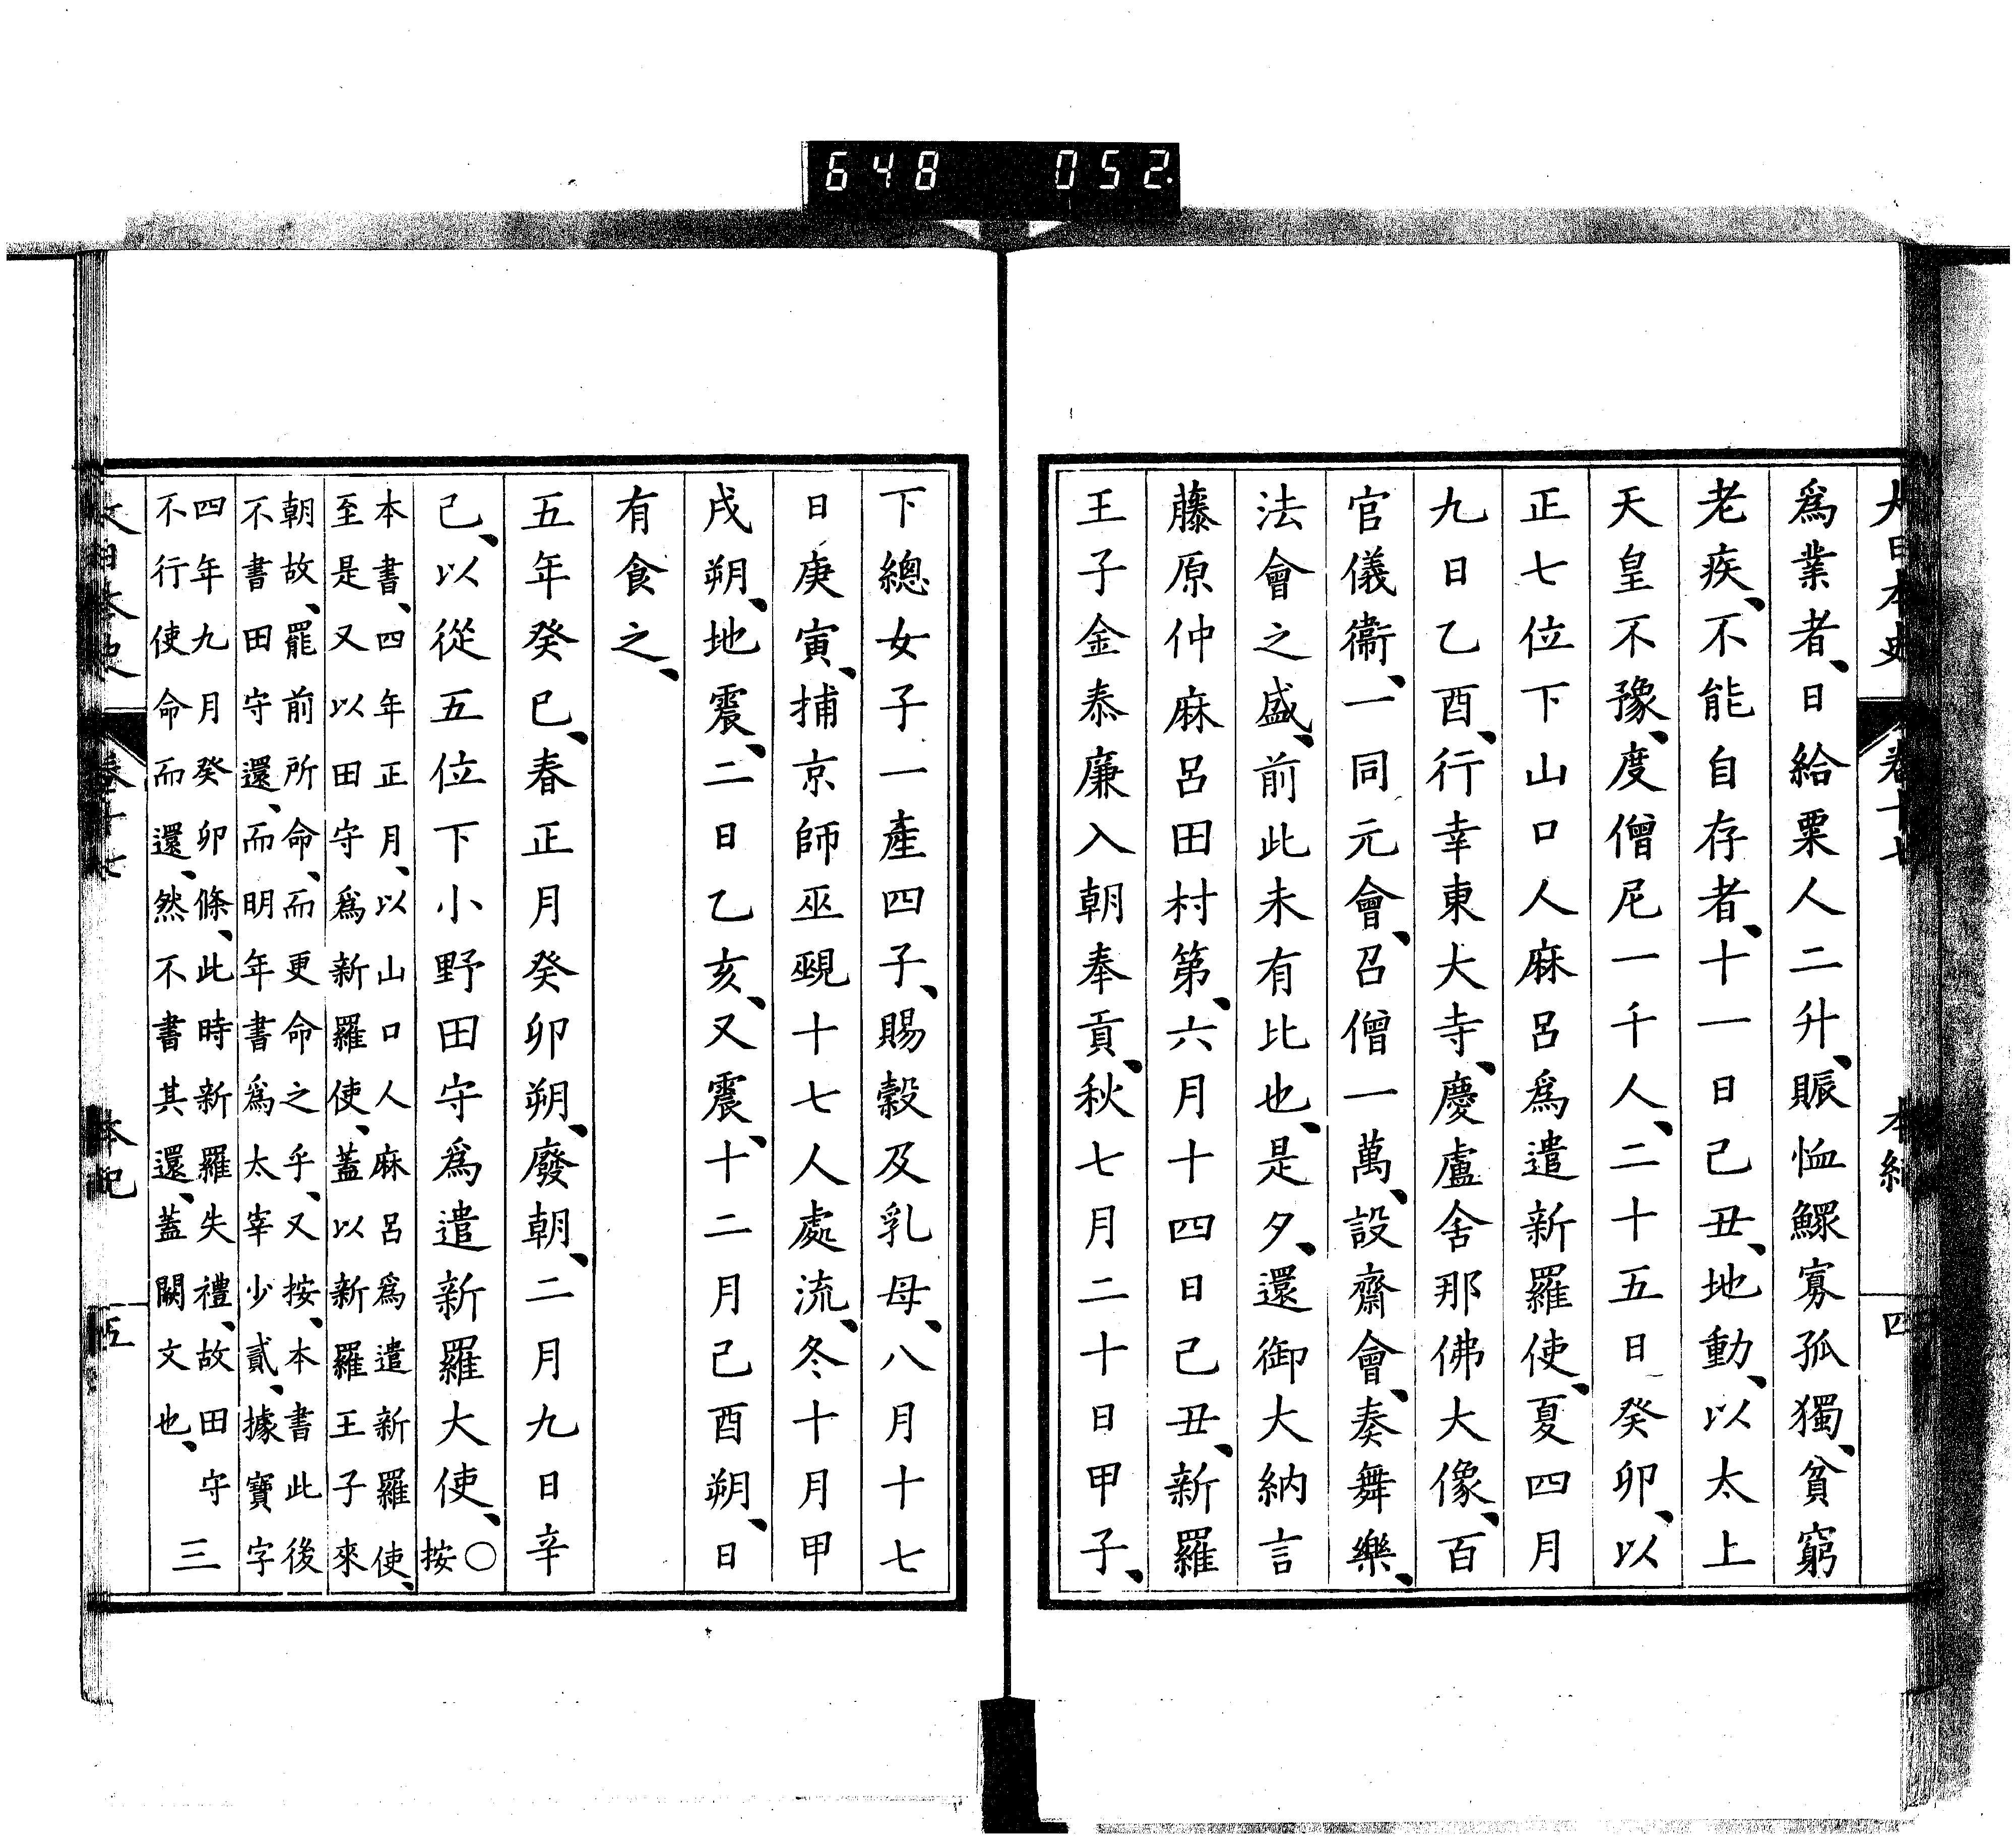 648 052
大日本史 卷十七 本紀 四
爲業者、日給粟人二升、賑恤鰥寡孤獨、貧窮
老疾、不能自存者、十一日己丑、地動、以太上
天皇不豫、度僧尼一千人、二十五日癸卯、以
正七位下山口人麻呂爲遣新羅使、夏四月
九日乙酉、行幸東大寺、慶盧舍那佛大像、百
官儀衞、一同元會、召僧一萬、設齋會、奏舞樂、
法會之盛、前此未有比也、是夕、還御大納言
藤原仲麻呂田村第、六月十四日己丑、新羅
王子金泰廉入朝奉貢、秋七月二十日甲子、
下總女子一產四子、賜穀及乳母、八月十七
日庚寅、捕京師巫覡十七人處流、冬十月甲
戌朔、地震、二日乙亥、又震、十二月己酉朔、日
有食之、
五年癸巳、春正月癸卯朔、廢朝、二月九日辛
已、以從五位下小野田守爲遣新羅大使、○按
本書、四年正月、以山口人麻呂爲遣新羅使、
至是又以田守爲新羅使、蓋以新羅王子來
朝故、罷前所命、而更命之乎、又按、本書此後
不書田守還、而明年書爲太宰少貳、據寶字
四年九月癸卯條、此時新羅失禮、故田守
不行使命而還、然不書其還、蓋闕文也、三
大日本史 卷十七 本紀 五